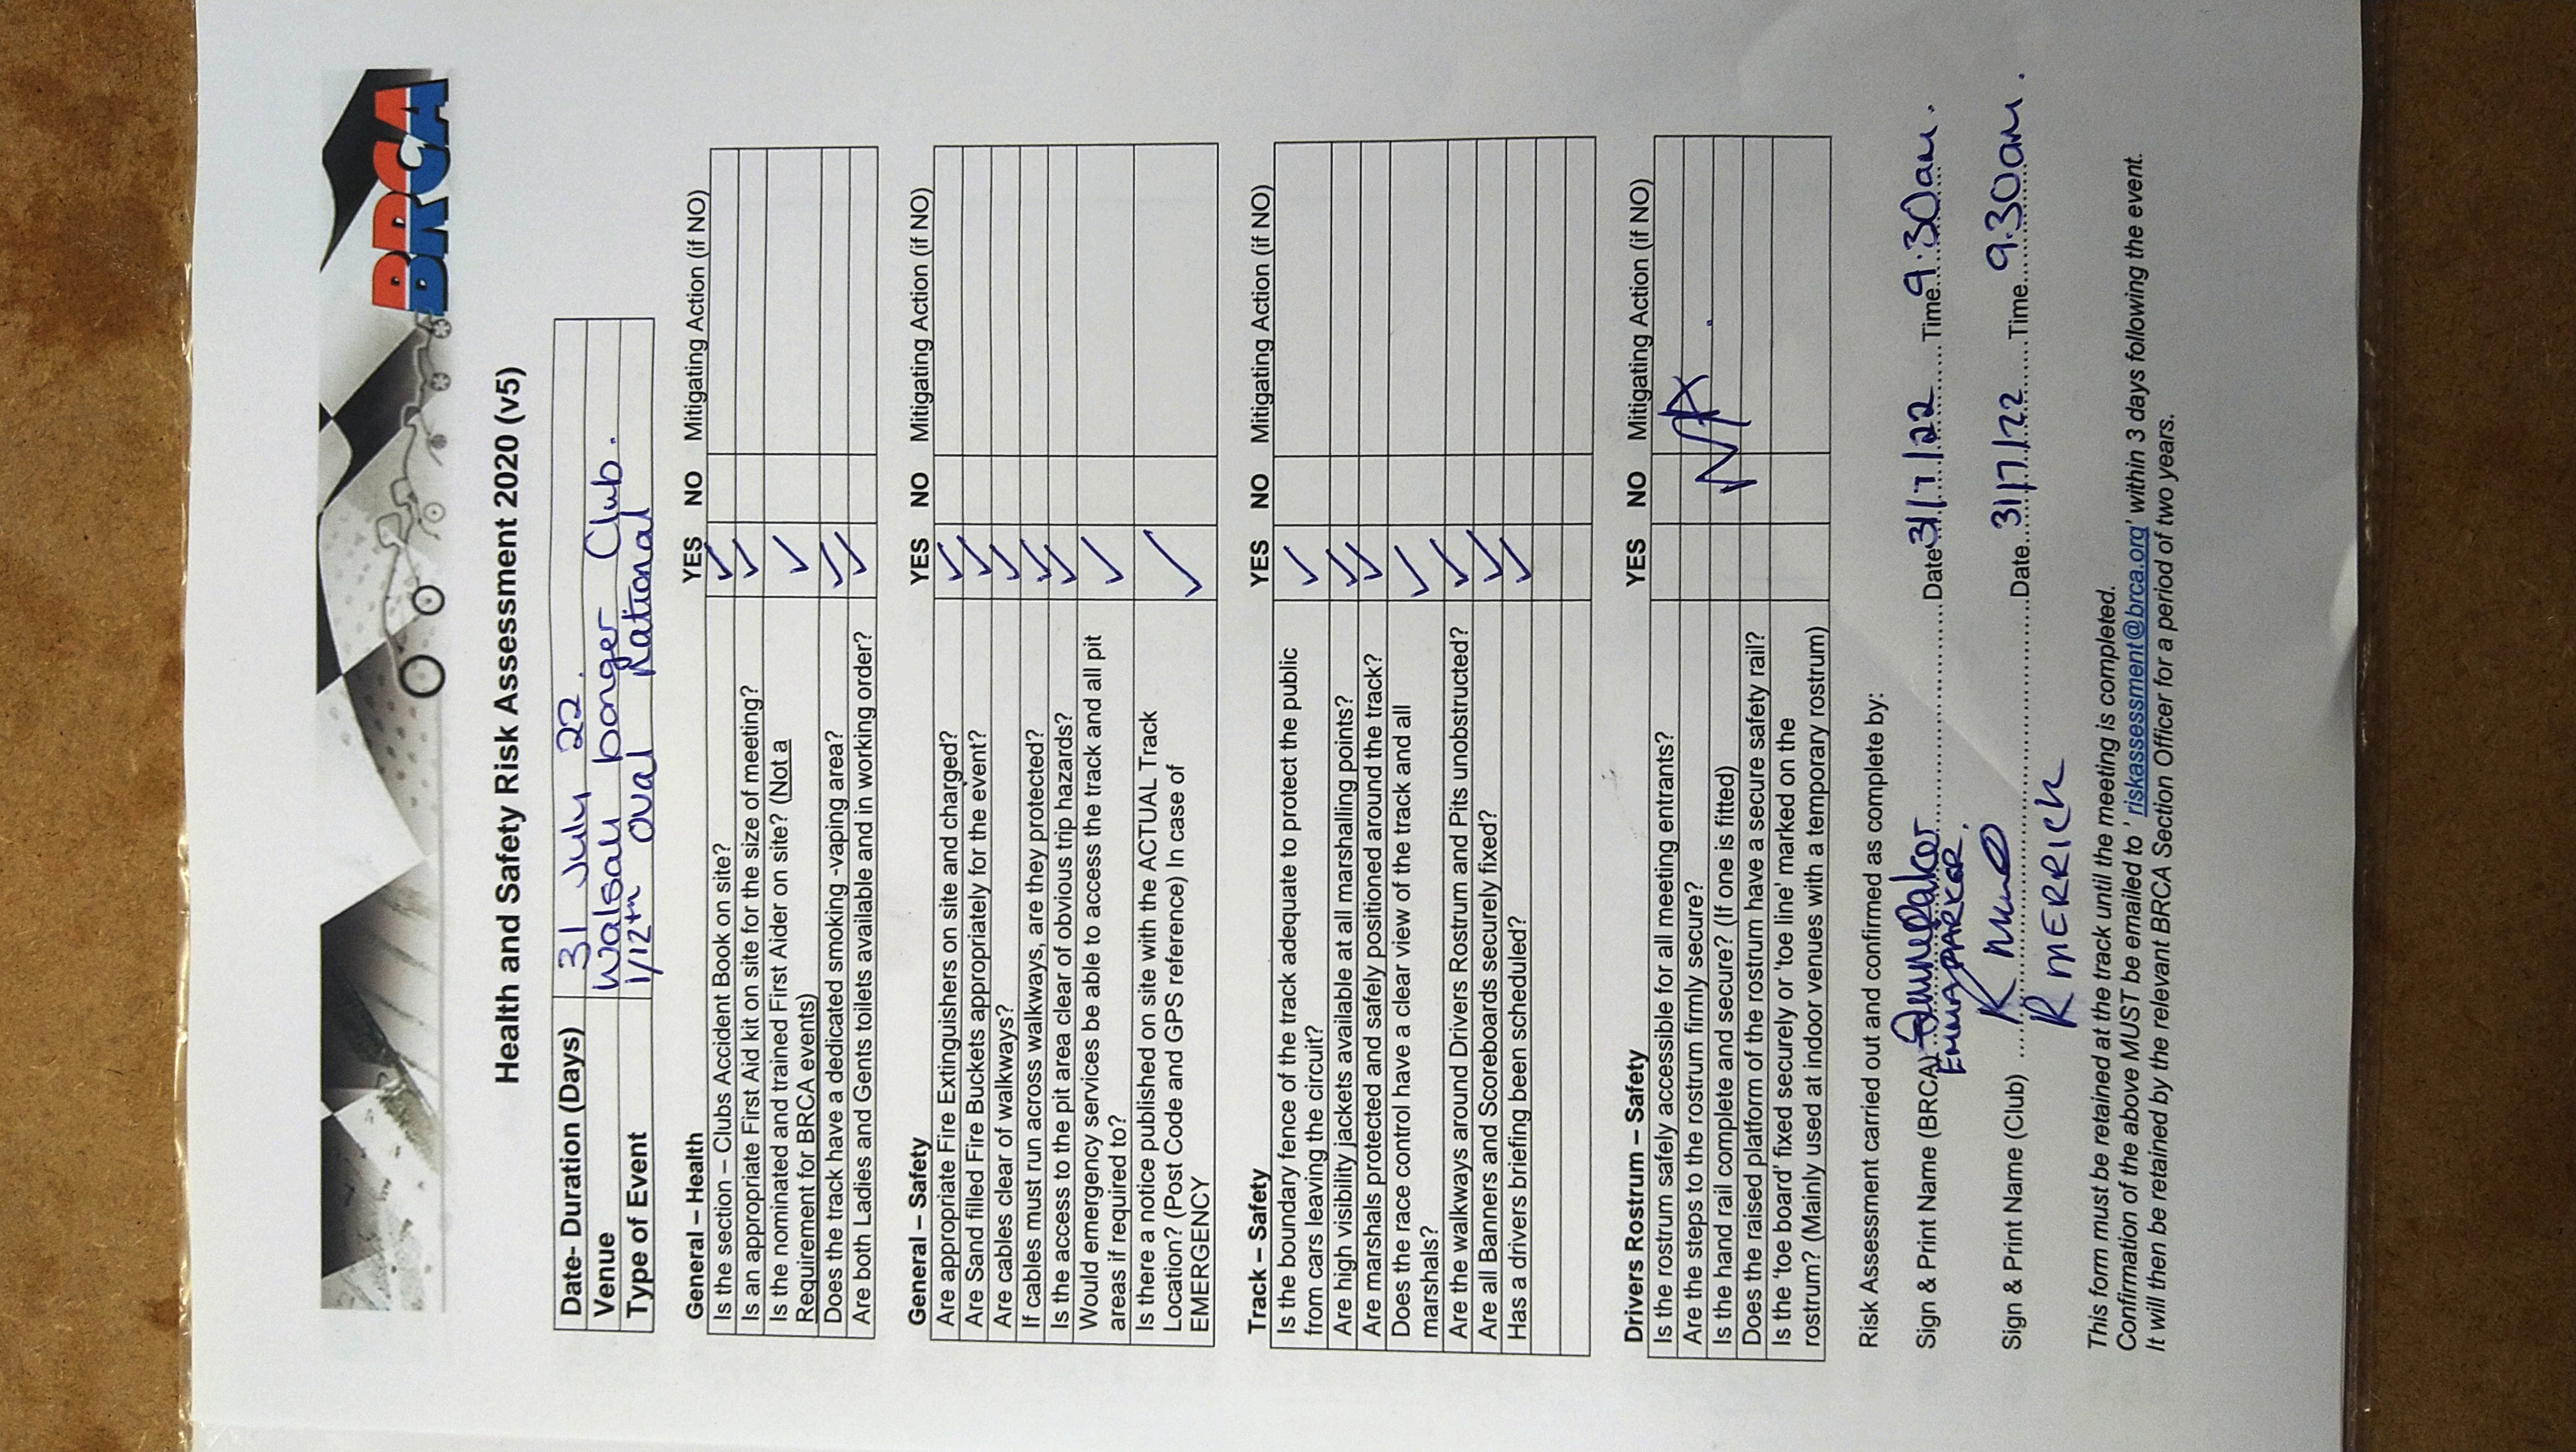 BRCA
Health and Safety Risk Assessment 2020 (v5)
Date- Duration (Days) 31 July 22.
Venue Walsall banger Club.
Type of Event 1/12th Oval National
General – Health YES NO Mitigating Action (if NO)
Is the section – Clubs Accident Book on site? ✓
Is an appropriate First Aid kit on site for the size of meeting? ✓
Is the nominated and trained First Aider on site? (Not a ✓
Requirement for BRCA events)
Does the track have a dedicated smoking -vaping area? ✓
Are both Ladies and Gents toilets available and in working order? ✓
General – Safety YES NO Mitigating Action (if NO)
Are appropriate Fire Extinguishers on site and charged? ✓
Are Sand filled Fire Buckets appropriately for the event? ✓
Are cables clear of walkways? ✓
If cables must run across walkways, are they protected? ✓
Is the access to the pit area clear of obvious trip hazards? ✓
Would emergency services be able to access the track and all pit ✓
areas if required to?
Is there a notice published on site with the ACTUAL Track ✓
Location? (Post Code and GPS reference) In case of
EMERGENCY
Track – Safety YES NO Mitigating Action (if NO)
Is the boundary fence of the track adequate to protect the public ✓
from cars leaving the circuit?
Are high visibility jackets available at all marshalling points? ✓
Are marshals protected and safely positioned around the track? ✓
Does the race control have a clear view of the track and all ✓
marshals?
Are the walkways around Drivers Rostrum and Pits unobstructed? ✓
Are all Banners and Scoreboards securely fixed? ✓
Has a drivers briefing been scheduled? ✓
Drivers Rostrum – Safety YES NO Mitigating Action (if NO)
Is the rostrum safely accessible for all meeting entrants?
Are the steps to the rostrum firmly secure? N/A
Is the hand rail complete and secure? (If one is fitted)
Does the raised platform of the rostrum have a secure safety rail?
Is the 'toe board' fixed securely or 'toe line' marked on the
rostrum? (Mainly used at indoor venues with a temporary rostrum)
Risk Assessment carried out and confirmed as complete by:
Sign & Print Name (BRCA) Date 31/7/22 Time 9:30am.
EMMA PARKER.
Sign & Print Name (Club) Date 31/7/22 Time 9.30am.
R MERRICK
This form must be retained at the track until the meeting is completed.
Confirmation of the above MUST be emailed to ' riskassessment@brca.org' within 3 days following the event.
It will then be retained by the relevant BRCA Section Officer for a period of two years.